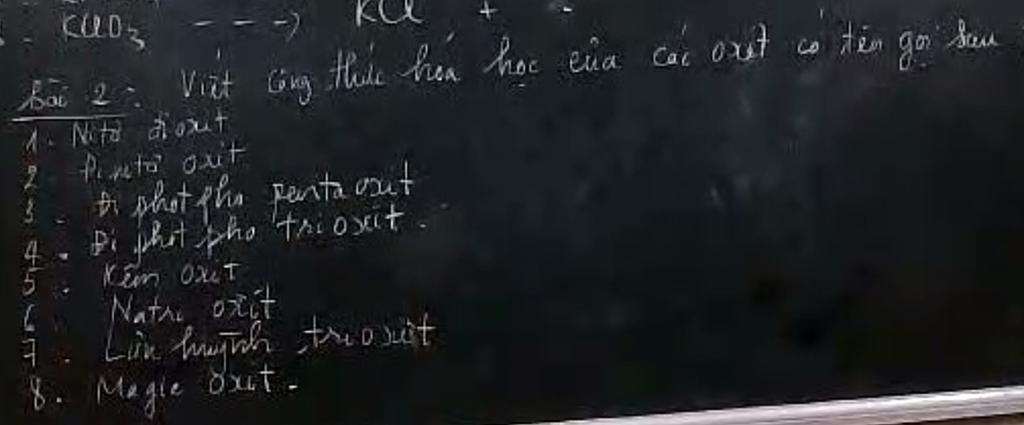 KClO₃ ---> KCl +
Bài 2: Viết công thức hóa học của các oxit có tên gọi sau
1. Nitơ đioxit
2. Đinitơ oxit
3. Đi phot pho penta oxit
4. Đi phot pho tri oxit.
5. Kẽm oxit
6. Natri oxit
7. Lưu huỳnh tri oxit
8. Magie oxit.